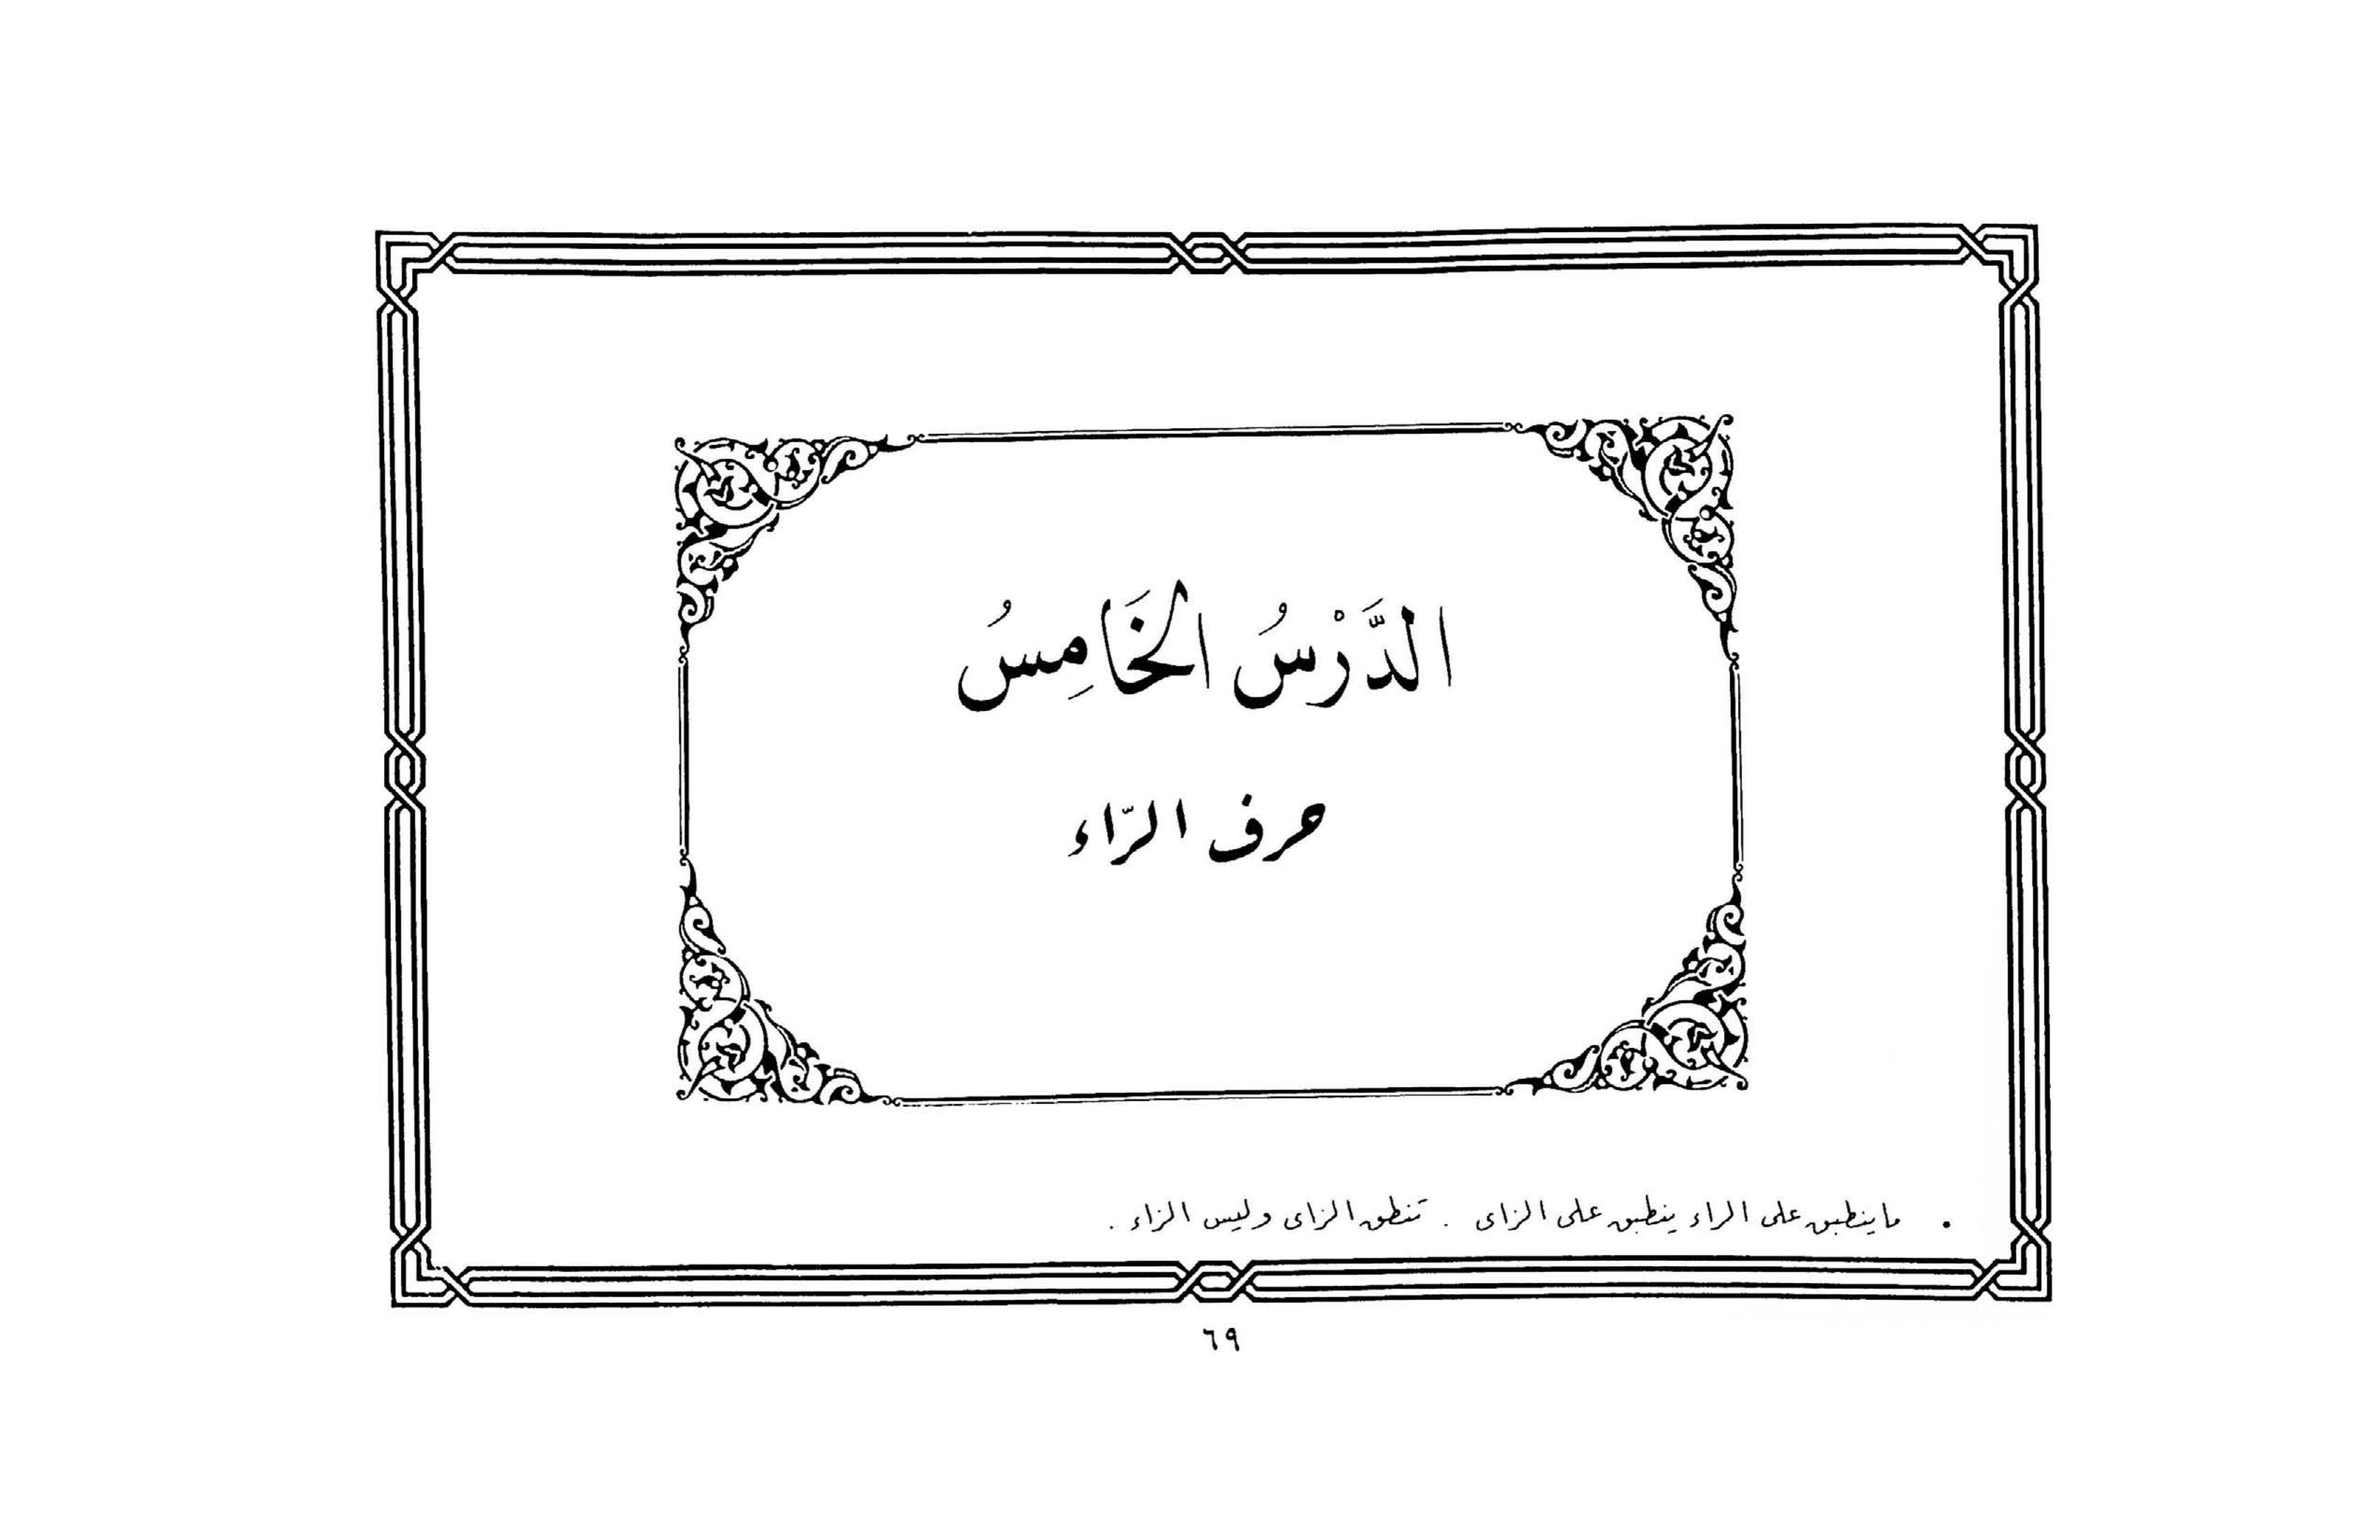 الدَّرْسُ الخَامِسُ
حرف الرّاء
• ماينطبق على الراء ينطبق على الزاى . تنطق الزاى وليس الزاء .
٦٩